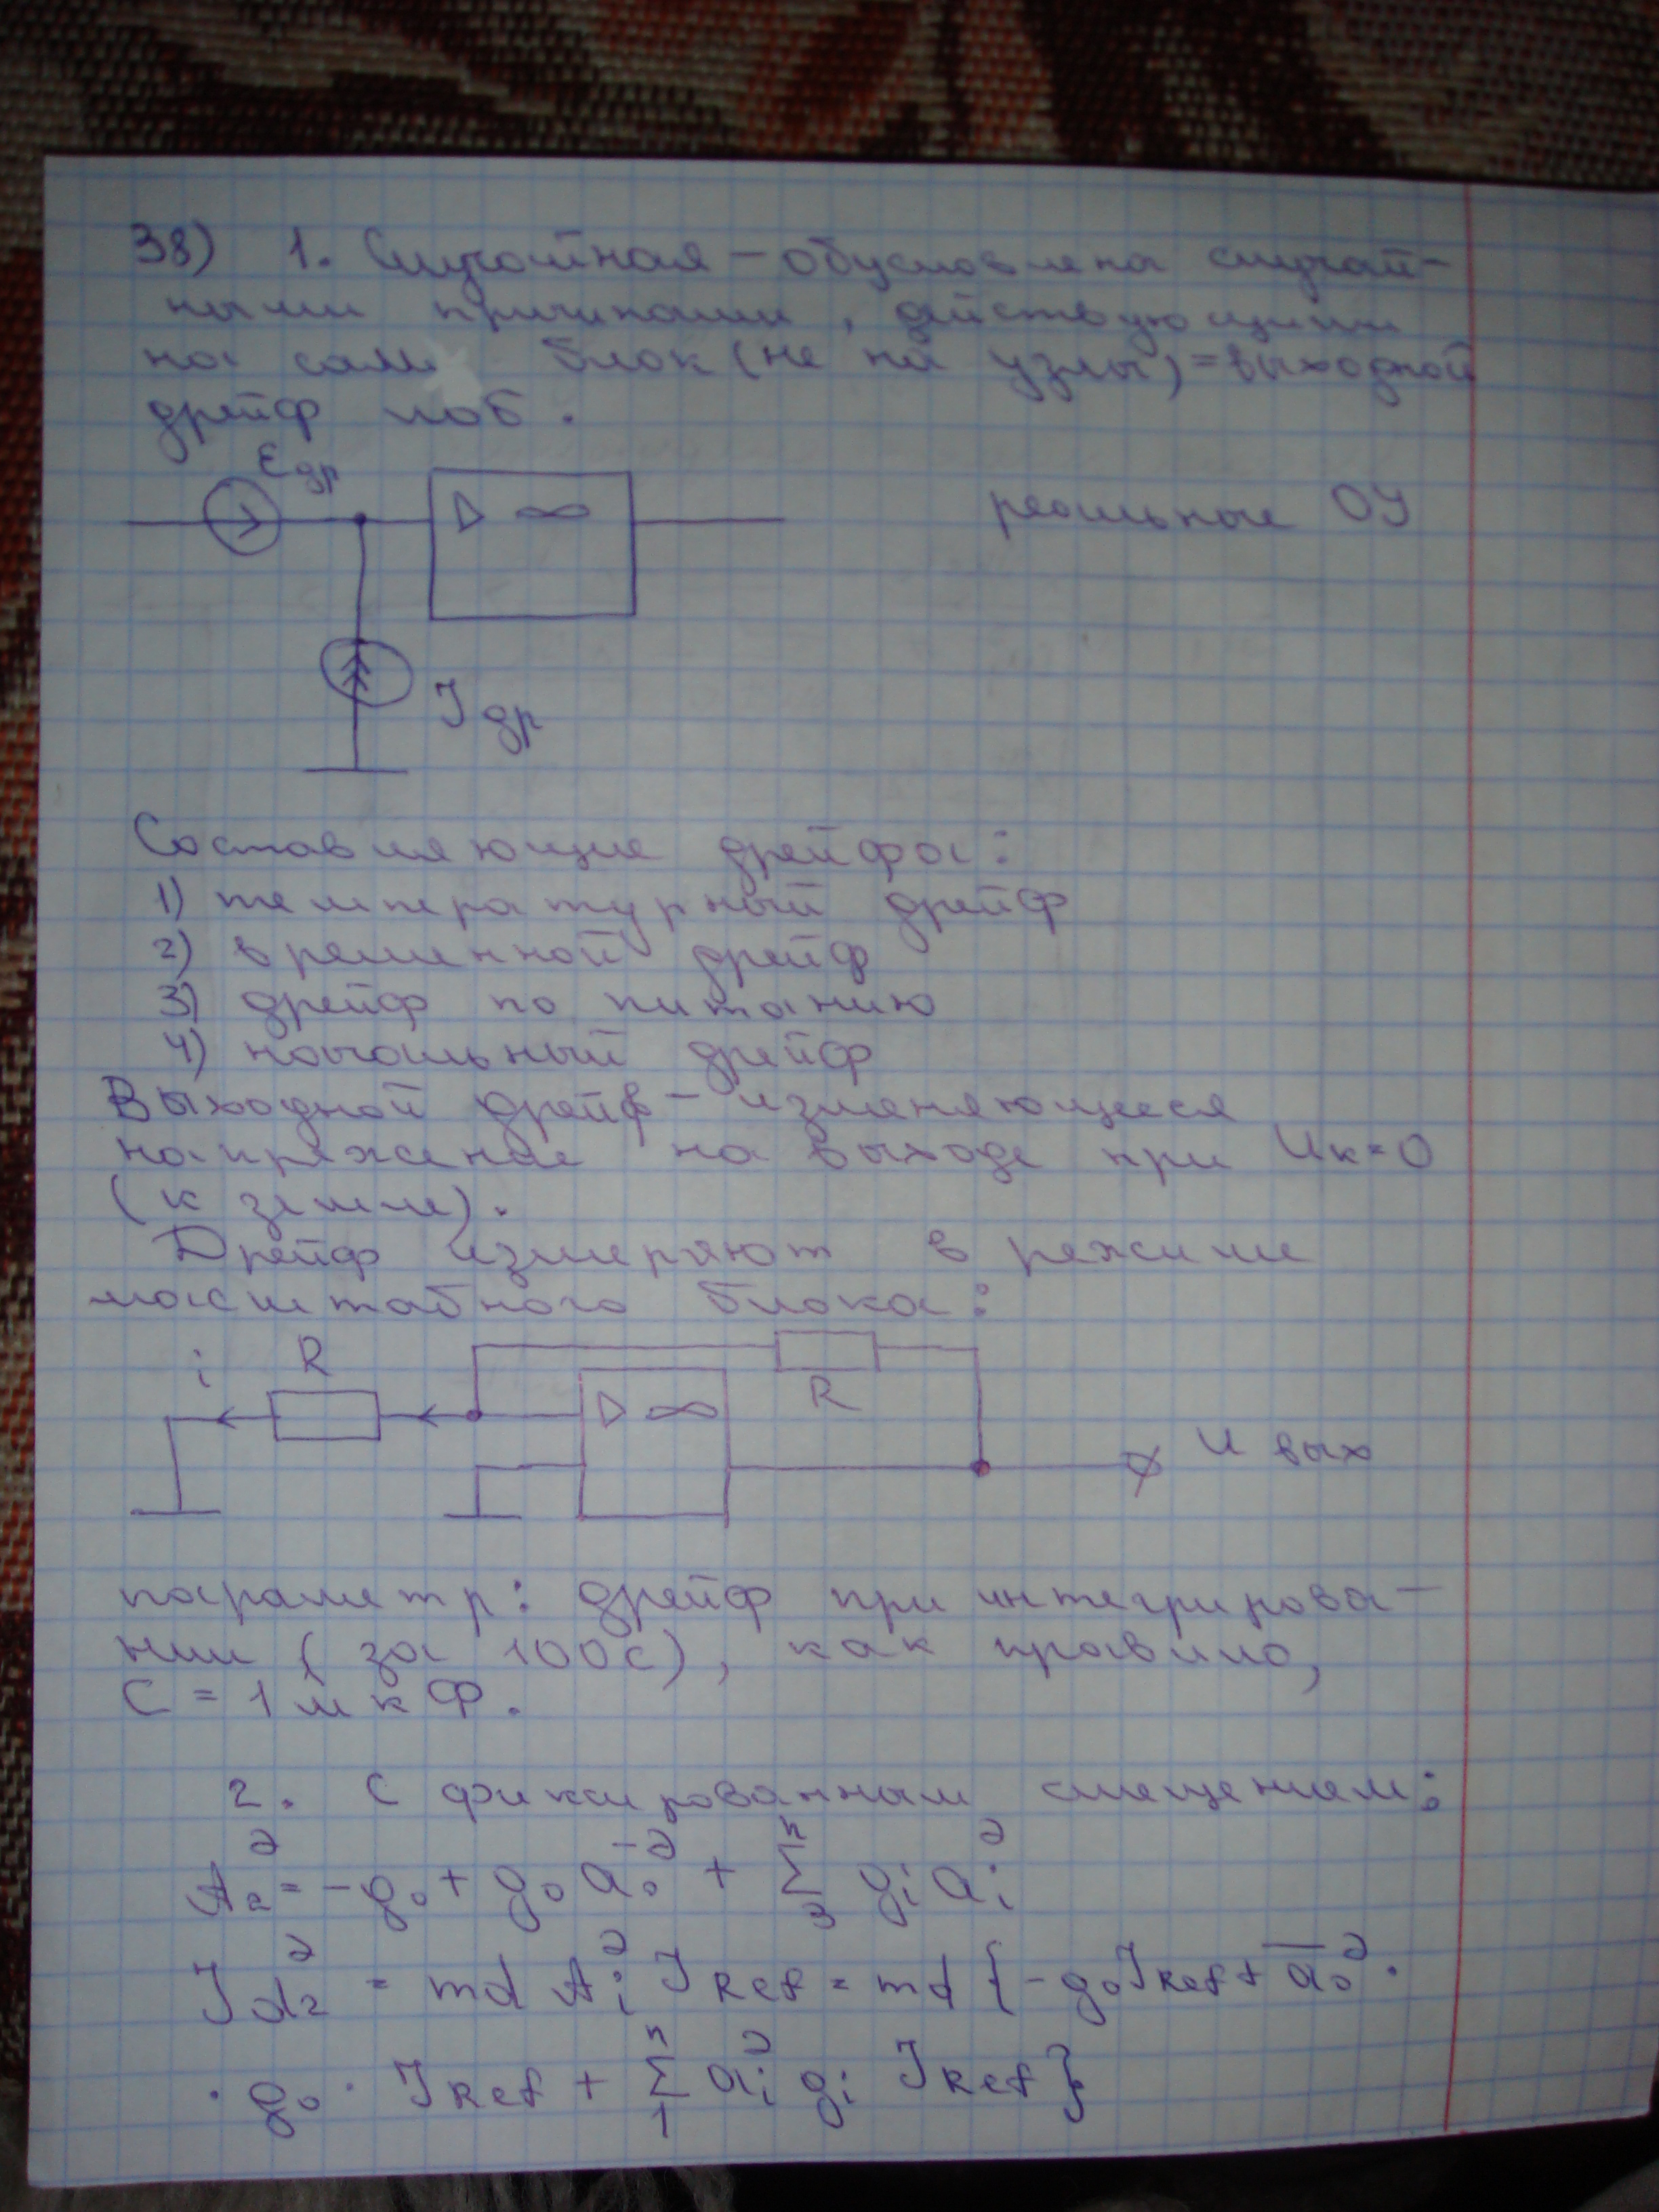 38) 1. Случайная – обусловлена случай-
ными причинами, действующими
на сам блок (не на узлы) = выходной
дрейф
Eдр
▷ ∞
реальные ОУ
Iдр
Составляющие дрейфа:
1) температурный дрейф
2) временной дрейф
3) дрейф по питанию
4) начальный дрейф
Выходной дрейф – изменяющееся
напряжение на выходе при Uк=0
(к земле).
Дрейф измеряют в режиме
масштабного блока:
i R
R
▷ ∞
U вых
параметр: дрейф при интегрирова-
нии (за 100с), как правило,
C = 1 мкФ.
2. С фиксированным смещением:
A₂^∂ = -g₀ + g₀ a̅₀^∂ + Σ₃ⁿ gᵢ aᵢ^∂
I_d₂^∂ = md Aᵢ^∂ I Ref = md {-g₀ I Ref + a̅₀^∂ ·
· g₀ · I Ref + Σ₁ⁿ aᵢ^∂ gᵢ I Ref}